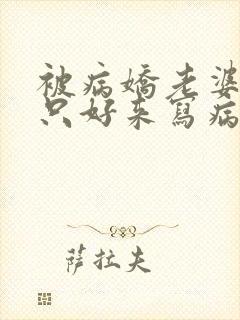 被病嬌老婆
只好來寫病
萨拉夫